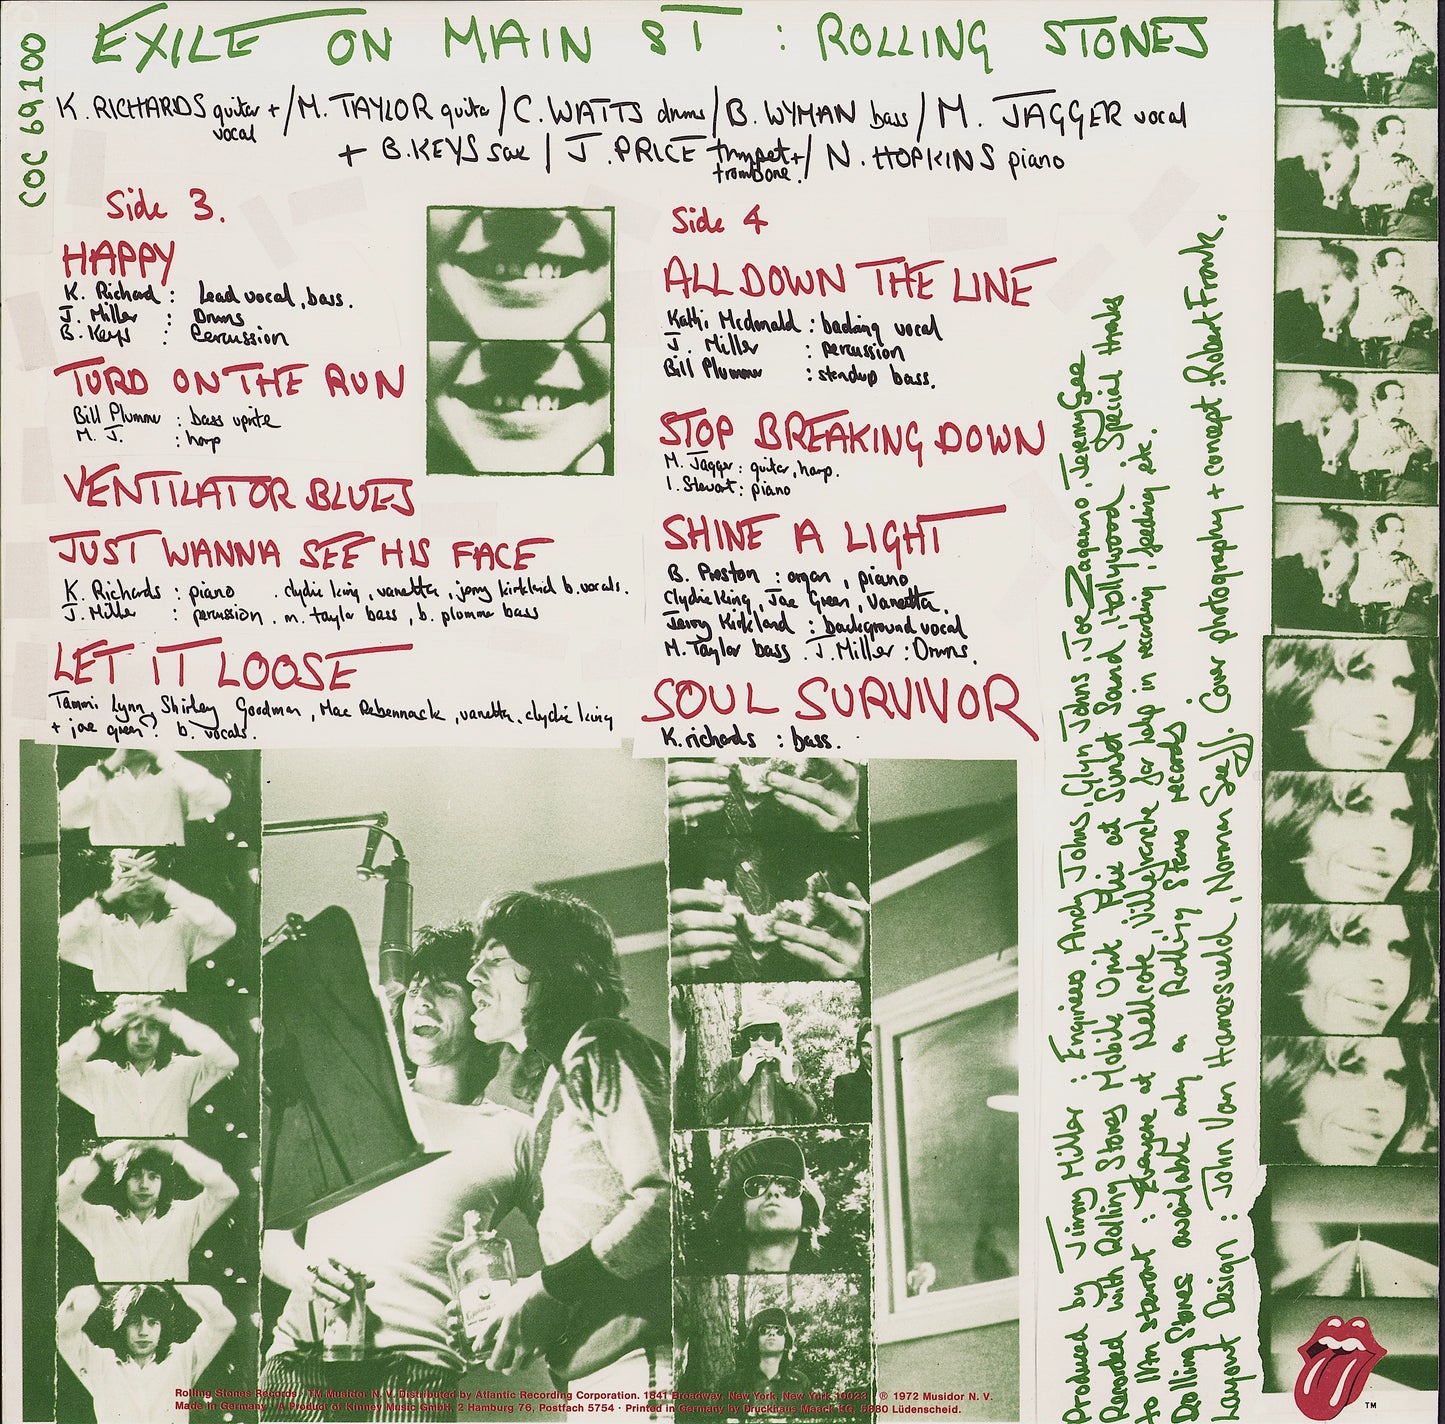 EXILE ON MAIN ST : ROLLING STONES
COC 69100
K. RICHARDS guitar + / M. TAYLOR guitar / C. WATTS drums / B. WYMAN bass / M. JAGGER vocal
vocal
+ B. KEYS sax / J. PRICE trumpet + / N. HOPKINS piano
trombone.
Side 3.
HAPPY
K. Richard : Lead vocal, bass.
J. Miller : Drums
B. Keys : Percussion
TURD ON THE RUN
Bill Plummer : bass uprite
M. J. : harp
VENTILATOR BLUES
JUST WANNA SEE HIS FACE
K. Richards : piano . clydie king, vanetta, jerry kirkland b. vocals.
J. Miller : percussion . m. taylor bass, b. plummer bass
LET IT LOOSE
Tammi Lynn, Shirley Goodman, Mac Rebennack, vanetta, clydie king
+ joe green? b. vocals.
Side 4
ALL DOWN THE LINE
Kathi Mcdonald : backing vocal
J. Miller : percussion
Bill Plummer : standup bass.
STOP BREAKING DOWN
M. Jagger : guitar, harp.
I. Stewart : piano
SHINE A LIGHT
B. Preston : organ, piano
Clydie King, Joe Green, Vanetta,
Jerry Kirkland : background vocal
M. Taylor bass . J. Miller : Drums.
SOUL SURVIVOR
K. richards : bass.
Produced by Jimmy Miller : Engineers Andy Johns, Glyn Johns, Joe Zagarino, Jeremy Gee
Recorded with Rolling Stones Mobile Unit + Mix at Sunset Sound, Hollywood. Special thanks
to Ian stewart : Everyone at Nellcote, Villefranche for help in recording, feeding etc.
Rolling Stones available only on Rolling Stones records.
Layout Design : John Van Hamersveld, Norman Seeff. Cover photography + concept : Robert Frank.
Rolling Stones Records · TM Musidor N. V. Distributed by Atlantic Recording Corporation. 1841 Broadway, New York, New York 10023 ℗ 1972 Musidor N. V.
Made in Germany · A Product of Kinney Music GmbH, 2 Hamburg 76, Postfach 5754 · Printed in Germany by Druckhaus Maack KG, 5880 Lüdenscheid.
TM